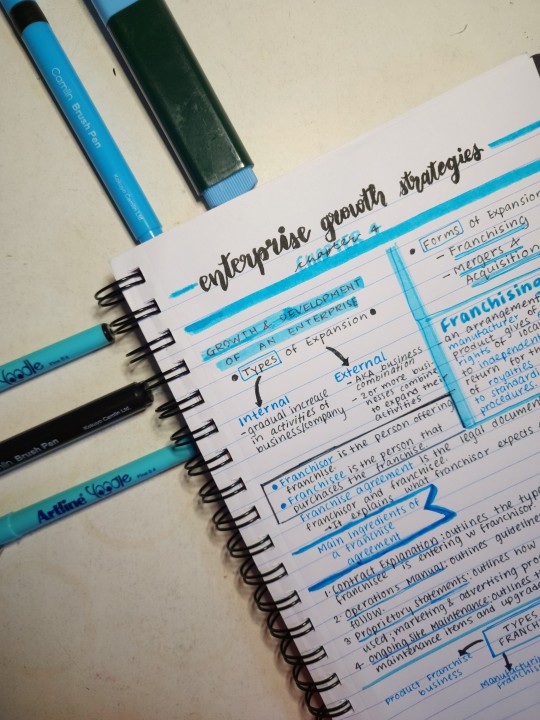 Camlin Brush Pen
Kokuyo Camlin Ltd
enterprise growth strategies
chapter 4
GROWTH & DEVELOPMENT
OF AN ENTERPRISE
• Types of Expansion •
Internal
- gradual increase
in activities of
business/company
External
- AKA business
combination
- 2 or more busi-
nesses combine
to expand their
activities
• Forms of Expansion
- Franchising
- Mergers &
Acquisition
Franchising
an arrangement
manufacturer of
product gives
rights of local
to independent
return for the
of royalties
to standardi
procedures.
• Franchisor is the person offering
franchise
• Franchisee is the person that
purchases the franchise
• Franchise agreement is the legal document
franchisor and franchisee.
→ It explains what franchisor expects
Main ingredients of
a franchise
agreement
1. Contract Explanation: outlines the type
franchisee is entering w franchisor
2. Operations Manual: outlines guidelines
follow.
3. Proprietary statements: outlines how
used; marketing & advertising pro
4. ongoing site Maintenance: outlines t
maintenance items and upgrad
TYPES
FRANCH
Product Franchise
business
Manufacturing
franchis
oodle
in Brush Pen
Kokuyo Camlin Ltd
Artline oodle